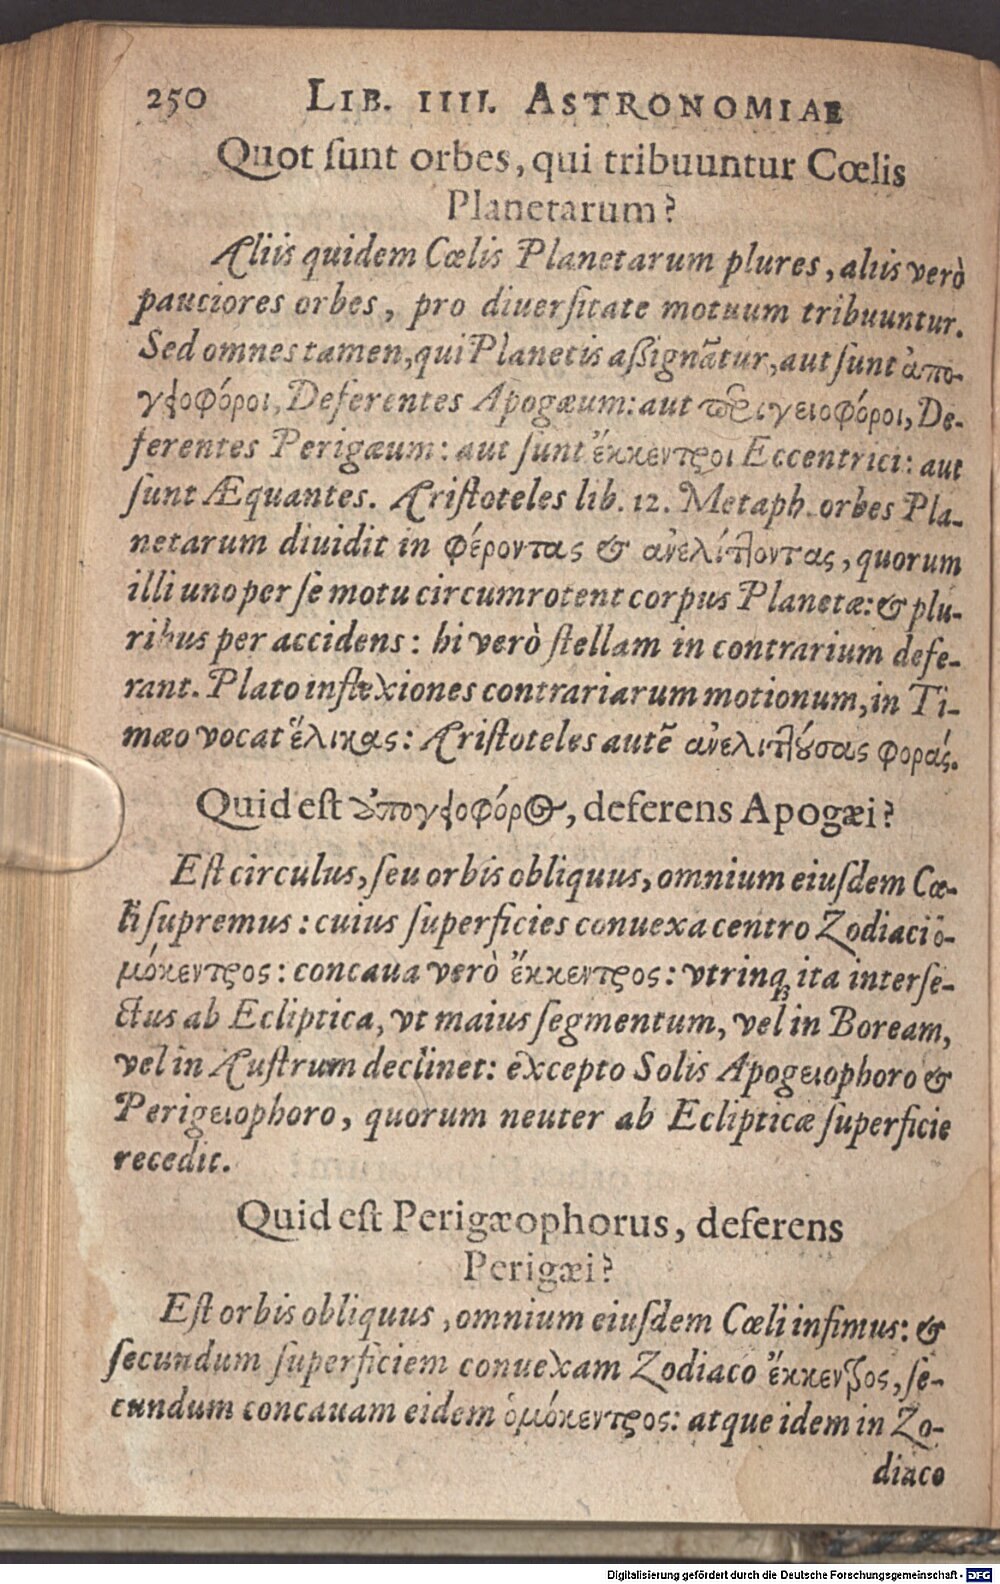 250 LIB. IIII. ASTRONOMIAE
Quot ſunt orbes, qui tribuuntur Cœlis
Planetarum?
Aliis quidem Cœlis Planetarum plures, aliis verò
pauciores orbes, pro diuerſitate motuum tribuuntur.
Sed omnes tamen, qui Planetis aßignãtur, aut ſunt ἀπο-
γειοφόροι, Deferentes Apogæum: aut περιγειοφόροι, De-
ferentes Perigæum: aut ſunt ἔκκεντροι Eccentrici: aut
ſunt Æquantes. Ariſtoteles lib. 12. Metaph. orbes Pla-
netarum diuidit in φέροντας & ἀνελίττοντας, quorum
illi uno per ſe motu circumrotent corpus Planetæ: & plu-
ribus per accidens: hi verò ſtellam in contrarium defe-
rant. Plato inflexiones contrariarum motionum, in Ti-
mæo vocat ἕλικας: Ariſtoteles autẽ ἀνελιττούσας φοράς.
Quid eſt ἀπογειοφόρος, deferens Apogæi?
Eſt circulus, ſeu orbis obliquus, omnium eiuſdem Cœ-
li ſupremus: cuius ſuperficies conuexa centro Zodiaci ὁ-
μόκεντρος: concaua verò ἔκκεντρος: vtrinqꝫ ita interſe-
ctus ab Ecliptica, vt maius ſegmentum, vel in Boream,
vel in Auſtrum declinet: excepto Solis Apogειophoro &
Perigειophoro, quorum neuter ab Eclipticæ ſuperficie
recedit.
Quid eſt Perigæophorus, deferens
Perigæi?
Eſt orbis obliquus, omnium eiuſdem Cœli infimus: &
ſecundum ſuperficiem conuexam Zodiaco ἔκκεντρος, ſe-
cundum concauam eidem ὁμόκεντρος: atque idem in Zo-
diaco
Digitalisierung gefördert durch die Deutsche Forschungsgemeinschaft - DFG